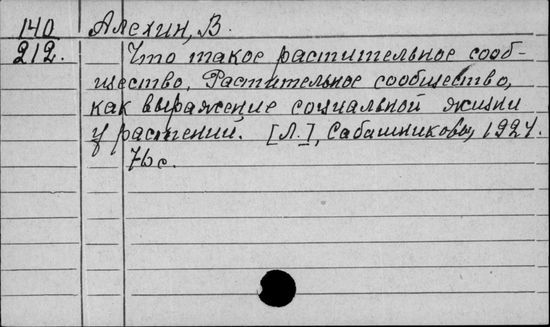 140 Алехин, В.
212. Что такое растительное сооб-
щество. Растительное сообщество,
как выражение социальной жизни
у растений. [Л.], Сабашниковы, 1924.
76 с.